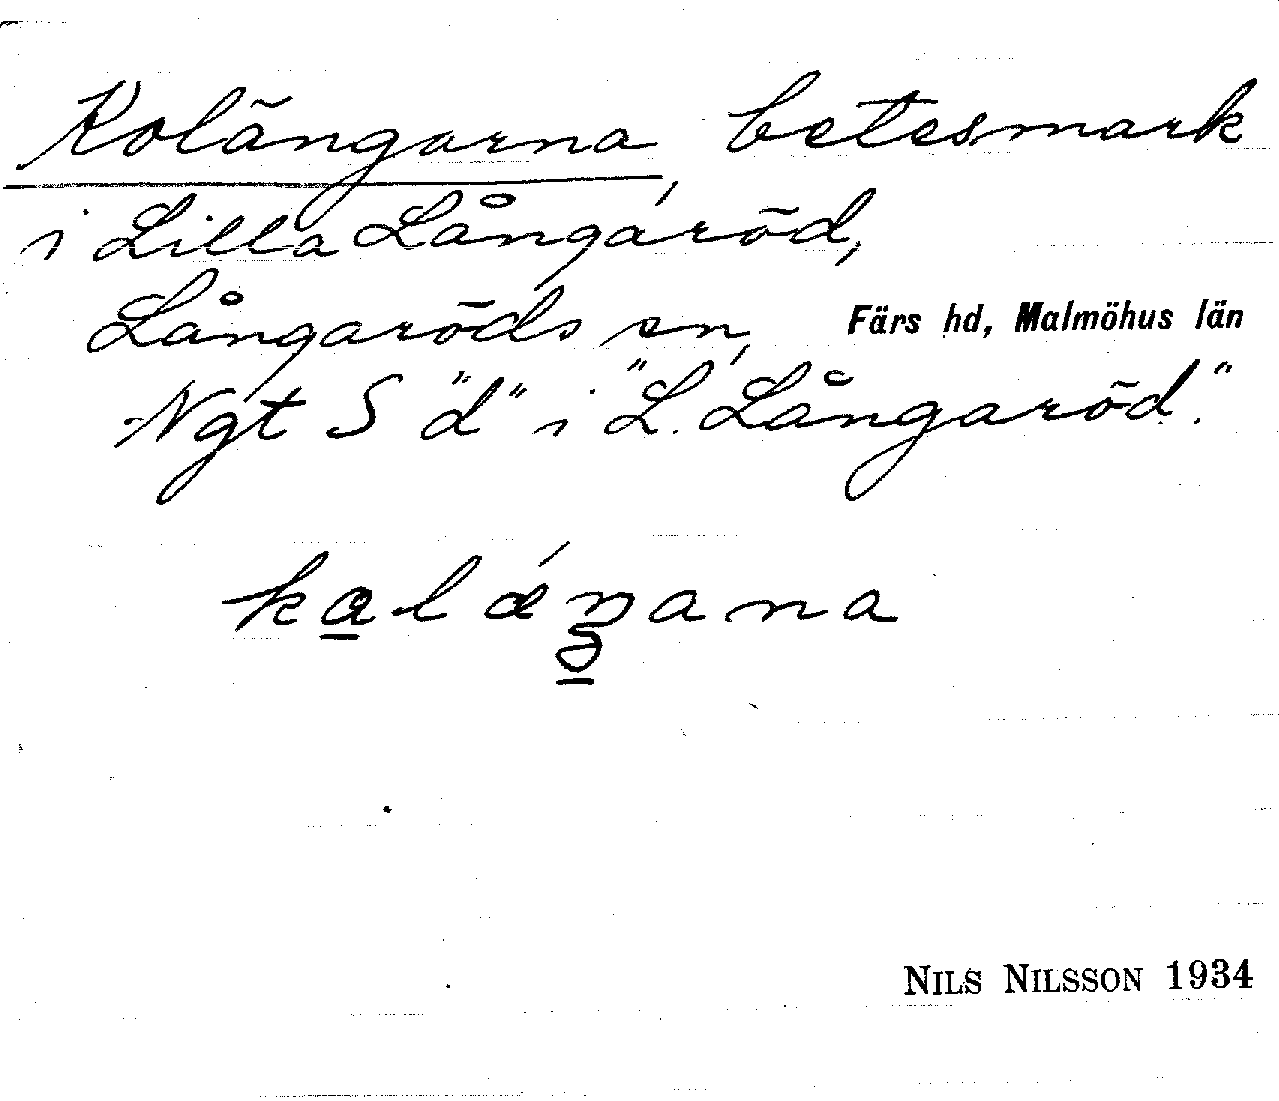 Kolängarna betesmark
i Lilla Långaröd,
Långaröds sn, Färs hd, Malmöhus län
Ngt S "d" i "L. Långaröd."
NILS NILSSON 1934